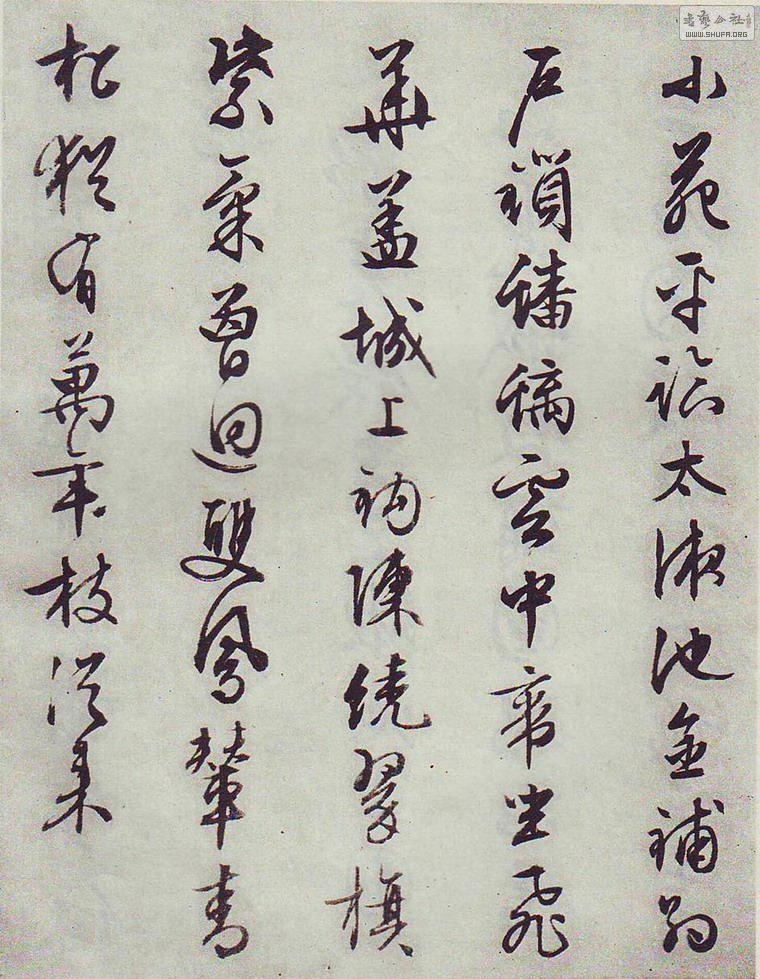 小苑平臨太液池金鋪約
戶鎖蟠螭雲中帝坐飛
華蓋城上鈎陳繞翠旗
紫氣曾迴雙鳳輦青
松猶有萬年枝從來
書藝公社
WWW.SHUFA.ORG